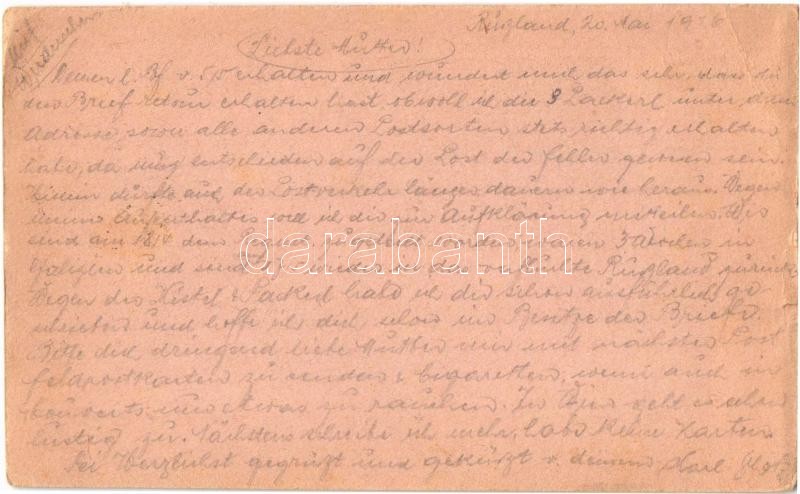 Rußland, 20. Mai 1916
Liebste Mutter!
Deinen l. Bf v. 5/5 erhalten und wundert mich das sehr, das du
den Brief retour erhalten hast, obwohl ich die 9 Packerl unter dem
Adresse sowie alle anderen Postsorten stets richtig erhalten
habe, da muß entschieden auf der Post der Fehler gewesen sein.
dürfte auch der Postverkehr länger dauern wie heraus. Wegen
meines Aufenthaltes will ich dir eine Aufklärung Wir
sind am 18/4 dem worden, waren 3 Wochen in
Galizien und sind wieder in die Rußland zurück
Wegen der Kistel & Packerl habe ich dir schon ausführlich ge-
schrieben und hoffe ich dich schon im Besitze des Briefes.
Bitte dich dringend liebe Mutter mir mit nächster Post
Feldpostkarten zu senden & Cigaretten, wenn auch in
Couverts nur etwas zu rauchen. In Wien geht es eher
lustig zu. Nächstens schreibe ich mehr, habe keine Karten.
Sei herzlichst gegrüßt und geküßt v. deinem Karl
darabanth